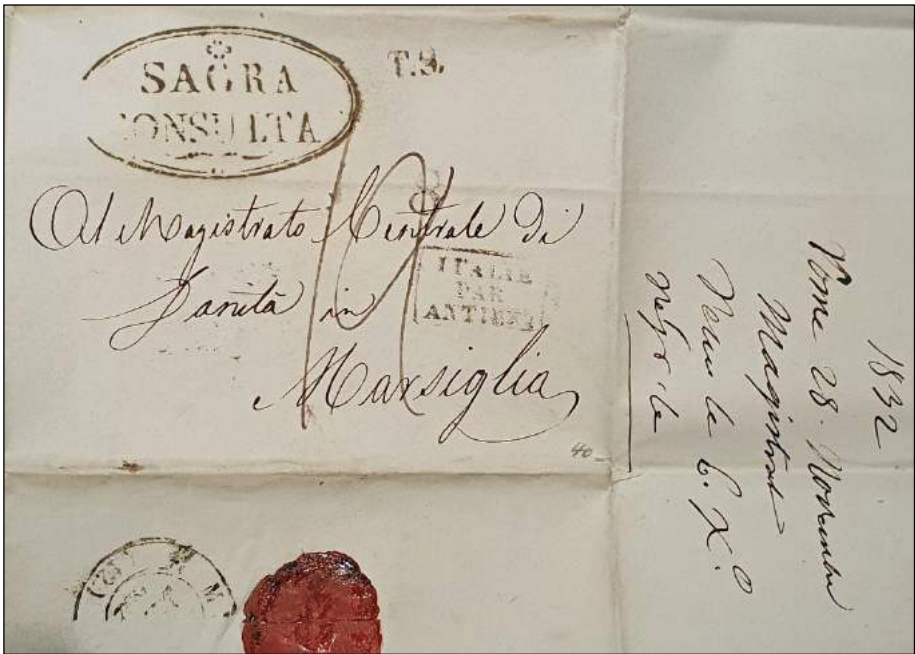 SAGRA
CONSULTA
T.S.
Al Magistrato Centrale di
Sanità in
Marsiglia
ITALIE
PAR
ANTIBES
40
1832
Rome 28 Novembre
Magistrat
le